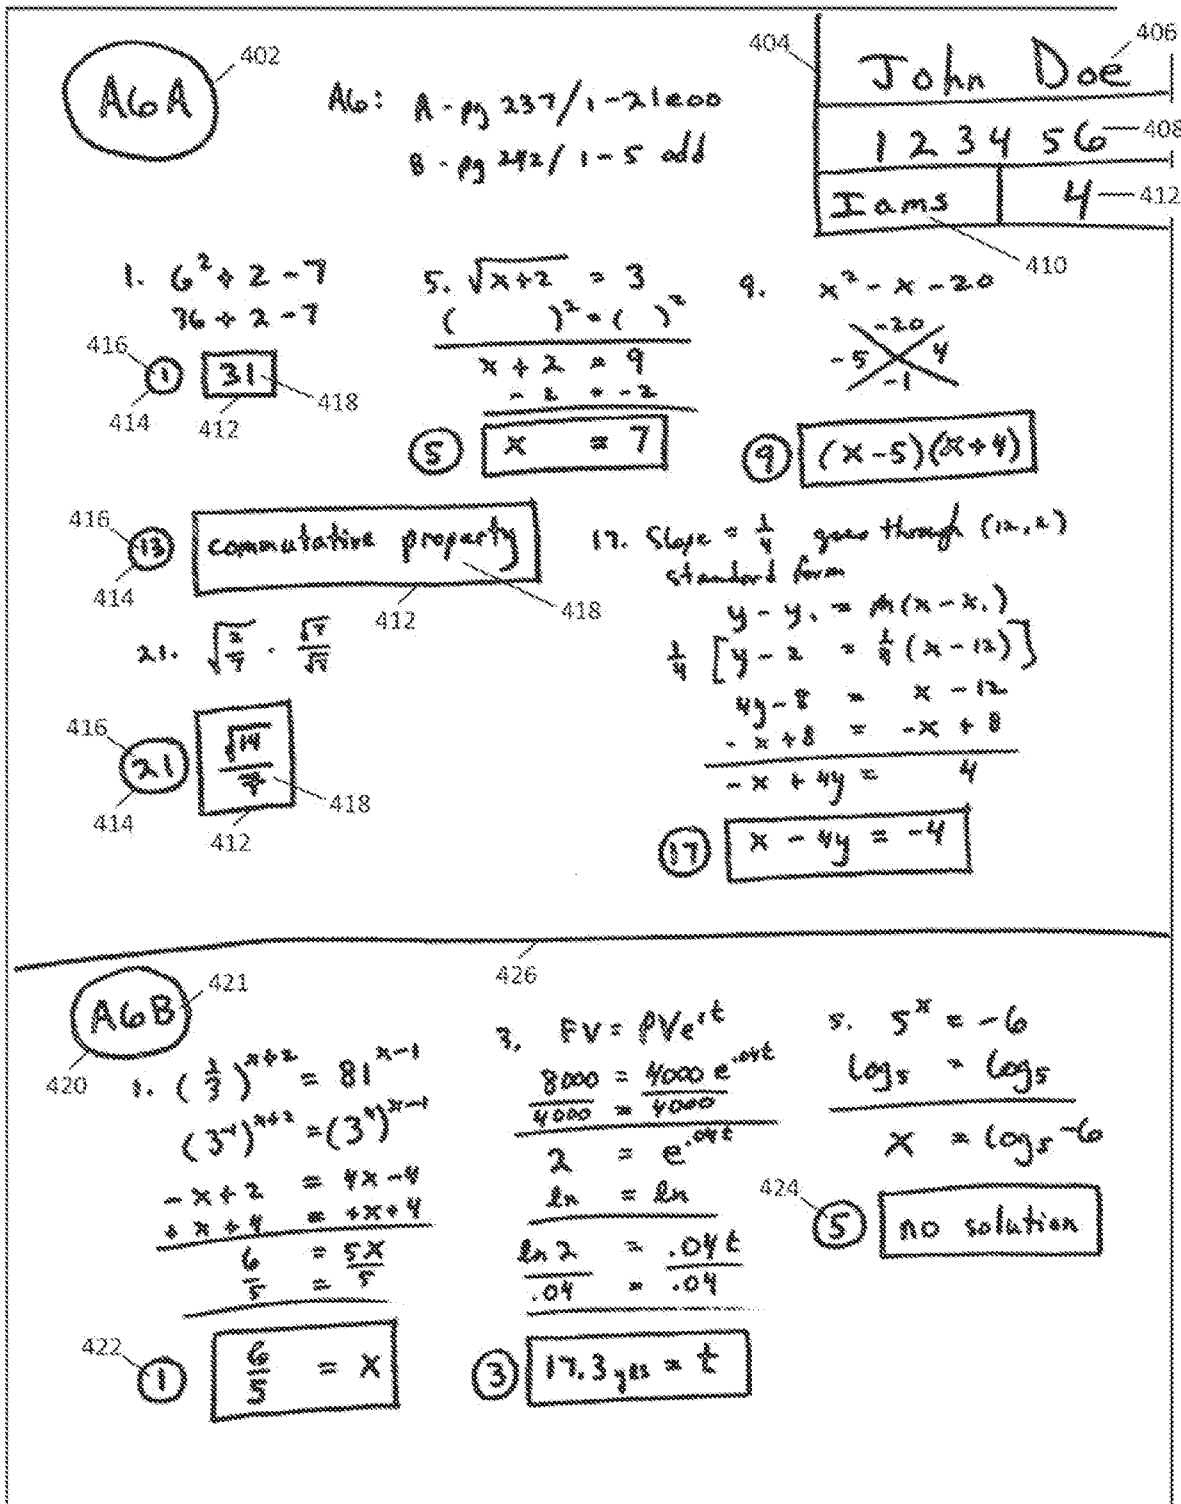 402
404
406
A6A
John Doe
A6: A - pg 237 / 1 - 21eoo
B - pg 242 / 1 - 5 odd
1 2 3 4 5 6
408
Iams
4
412
410
1. 6² + 2 - 7
36 + 2 - 7
416
414
1
31
418
412
5. √x+2 = 3
( )² = ( )²
x + 2 = 9
- 2 = -2
5
x = 7
9. x² - x - 20
-20
-5 4
-1
9
(x-5)(x+4)
416
13
commutative property
414
412
418
17. Slope = 1/4 goes through (12,2)
standard form
y - y₁ = m(x - x₁)
1/4 [y - 2 = 1/4 (x - 12)]
4y - 8 = x - 12
- x + 8 = -x + 8
-x + 4y = 4
17
x - 4y = -4
21. √2/7 · √7/√7
416
21
√14/7
414
418
412
426
A6B
421
420
1. (1/3)^x+2 = 81^x-1
(3^-1)^x+2 = (3^4)^x-1
-x + 2 = 4x - 4
+ x + 4 = +x + 4
6/5 = 5x/5
422
1
6/5 = x
3. FV = PVe^rt
8000/4000 = 4000 e^.04t/4000
2 = e^.04t
ln = ln
ln 2/.04 = .04t/.04
3
17.3 yrs = t
5. 5^x = -6
log₅ = log₅
x = log₅ -6
424
5
no solution